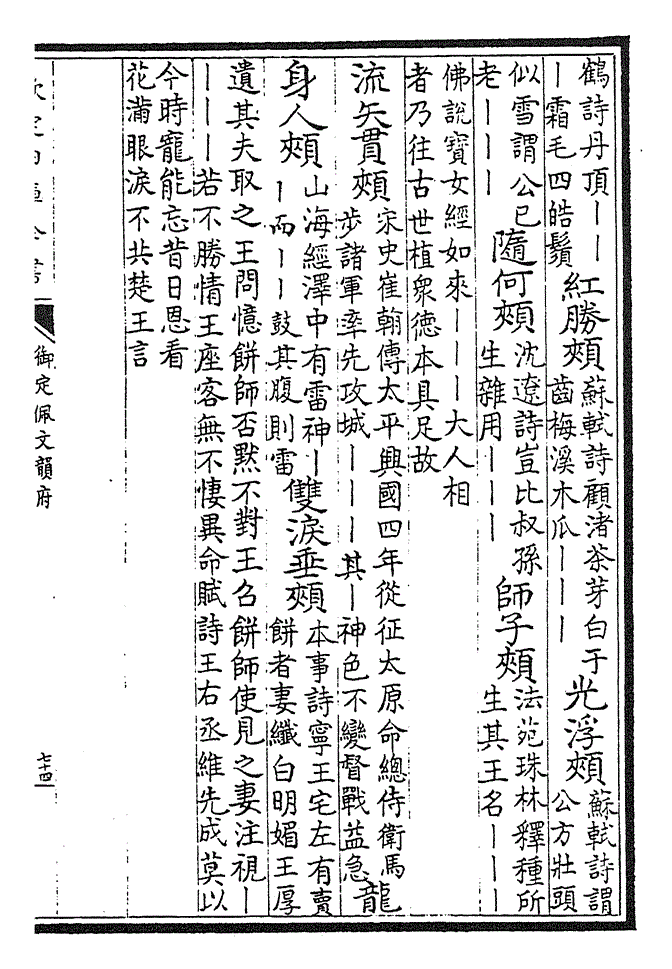 鶴詩丹頂丨丨
丨霜毛四皓鬚
紅勝頰
蘇軾詩顧渚茶芽白于
齒梅溪木瓜丨丨丨
光浮頰
蘇軾詩謂
公方壯頭
似雪謂公已
老丨丨丨
隨何頰
沈遼詩豈比叔孫
生雜用丨丨丨
師子頰
法苑珠林釋種所
生其王名丨丨丨
佛說寶女經如來丨丨丨大人相
者乃往古世植衆德本具足故
流矢貫頰
宋史崔翰傳太平興國四年從征太原命總侍衛馬
步諸軍率先攻城丨丨丨其丨神色不變督戰益急
龍
身人頰
山海經澤中有雷神丨
丨而丨丨鼓其腹則雷
雙淚垂頰
本事詩寧王宅左有賣
餅者妻纖白明媚王厚
遺其夫取之王問憶餅師否默不對王召餅師使見之妻注視丨
丨丨丨若不勝情王座客無不悽異命賦詩王右丞維先成莫以
今時寵能忘昔日恩看
花滿眼淚不共楚王言
欽定四庫全書
御定佩文韻府
七十四